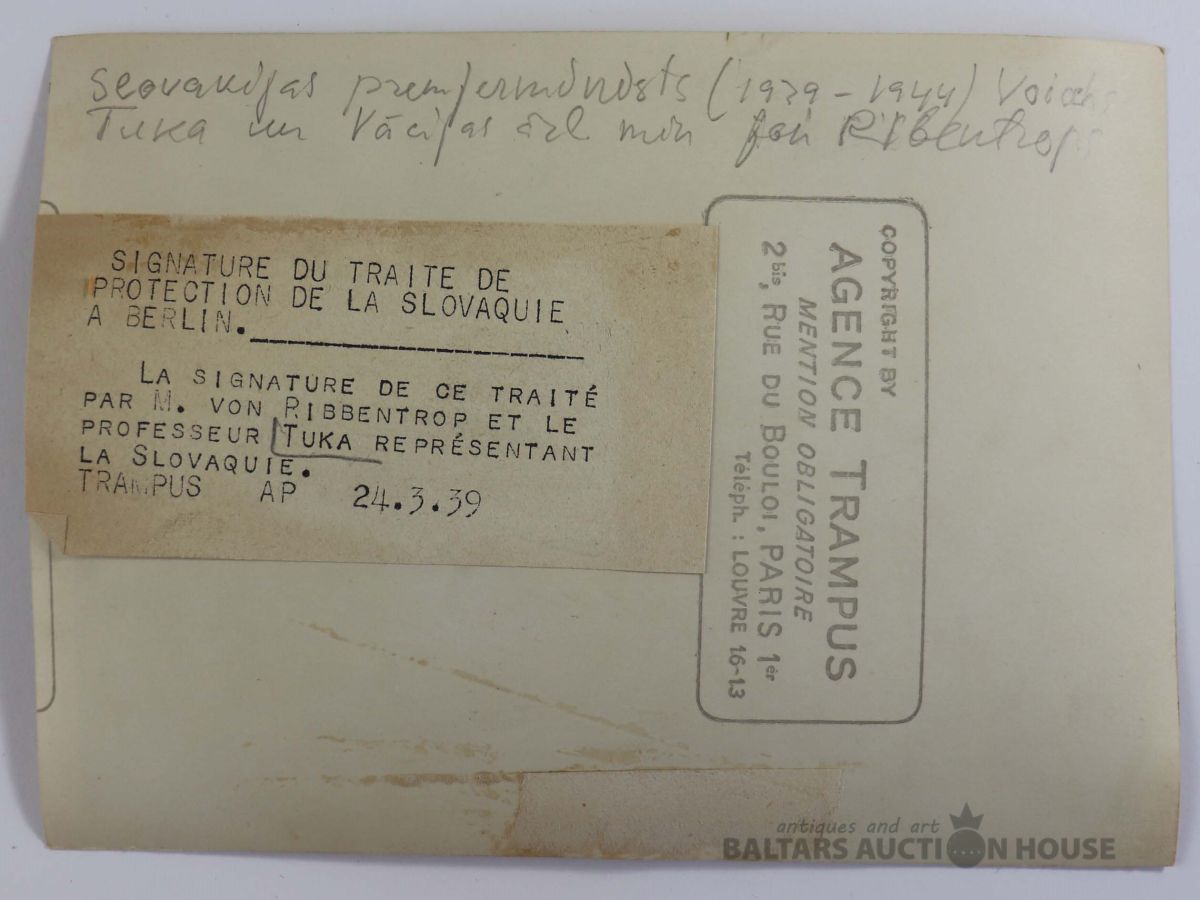 Slovakijas premjerministrs (1939-1944) Voitehs
Tuka un Vācijas ārl min fon Ribentrops
SIGNATURE DU TRAITE DE
PROTECTION DE LA SLOVAQUIE
A BERLIN.
LA SIGNATURE DE CE TRAITÉ
PAR M. VON RIBBENTROP ET LE
PROFESSEUR TUKA REPRÉSENTANT
LA SLOVAQUIE.
TRAMPUS AP 24.3.39
COPYRIGHT BY
AGENCE TRAMPUS
MENTION OBLIGATOIRE
2bis, RUE DU BOULOI, PARIS 1er
Téléph. : LOUVRE 16-13
antiques and art
BALTARS AUCTION HOUSE